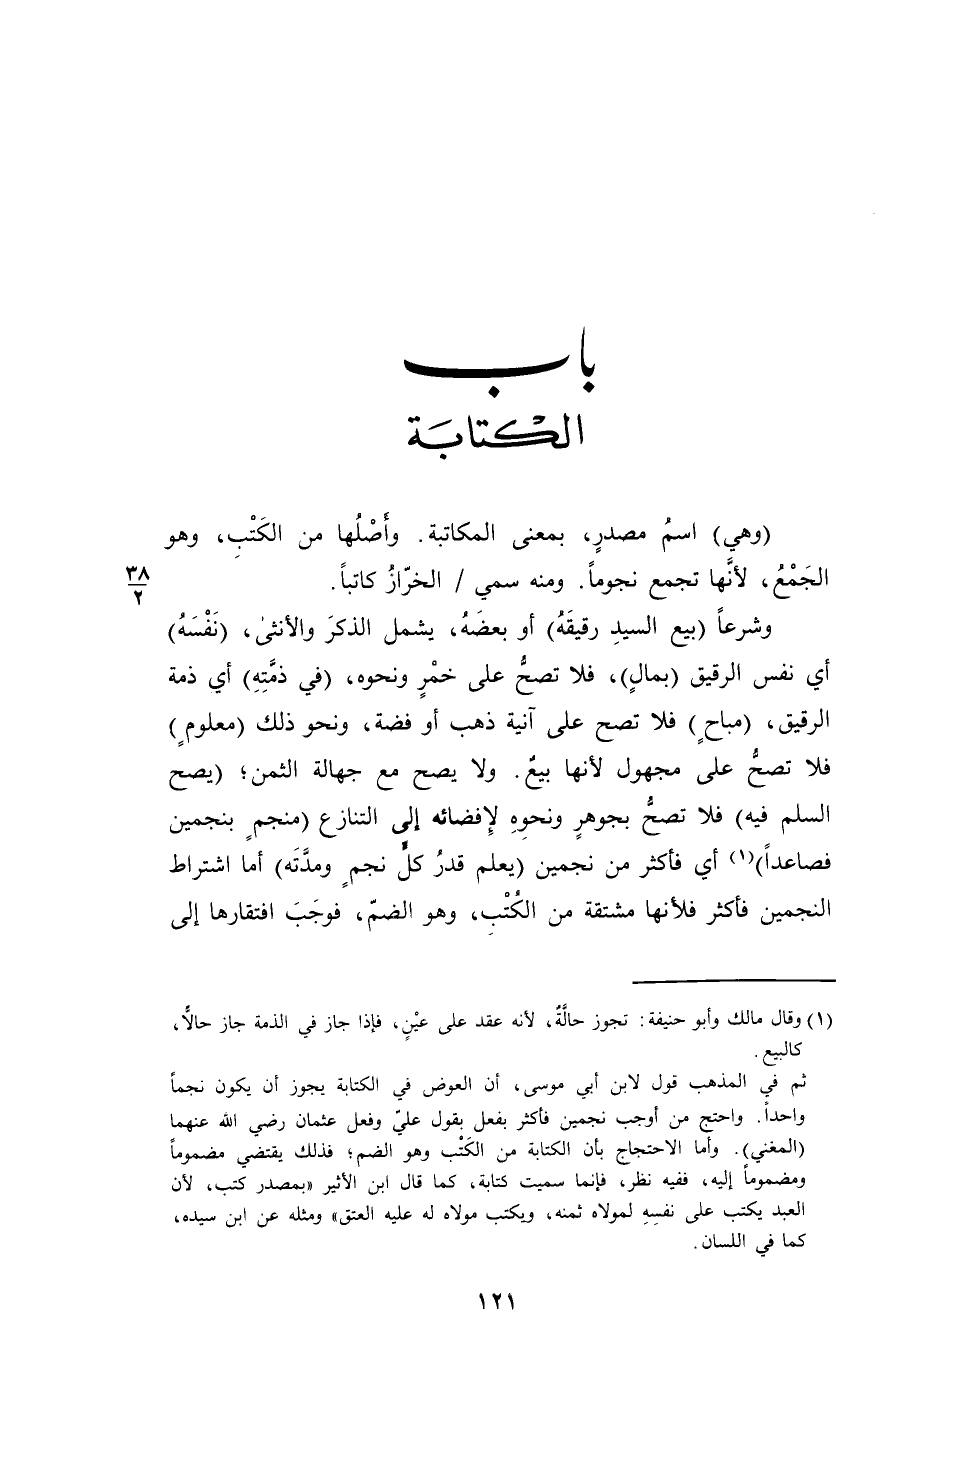 باب
الكتابة
(وهي) اسمُ مصدرٍ، بمعنى المكاتبة. وأَصْلُها من الكَتْبِ، وهو
الجَمْعُ، لأنَّها تجمع نجوماً. ومنه سمي / الخرّازُ كاتباً.
٣٨
٢
وشرعاً (بيع السيدِ رقيقَهُ) أو بعضَهُ، يشمل الذكرَ والأنثىٰ، (نَفْسَهُ)
أي نفس الرقيق (بمالٍ)، فلا تصحُّ على خمْرٍ ونحوه، (في ذمَّتِهِ) أي ذمة
الرقيق، (مباحٍ) فلا تصح على آنية ذهب أو فضة، ونحو ذلك (معلومٍ)
فلا تصحُّ على مجهول لأنها بيعٌ. ولا يصح مع جهالة الثمن؛ (يصح
السلم فيه) فلا تصحُّ بجوهرٍ ونحوِهِ لإفضائه إلى التنازع (منجمٍ بنجمين
فصاعداً)(١) أي فأكثر من نجمين (يعلم قدرُ كلِّ نجمٍ ومدَّتَه) أما اشتراط
النجمين فأكثر فلأنها مشتقة من الكُتْبِ، وهو الضمّ، فوجَبَ افتقارها إلى
(١) وقال مالك وأبو حنيفة: تجوز حالَّةً، لأنه عقد على عيْنٍ، فإذا جاز في الذمة جاز حالًّا،
كالبيع.
ثم في المذهب قول لابن أبي موسى، أن العوض في الكتابة يجوز أن يكون نجماً
واحداً. واحتج من أوجب نجمين فأكثر بفعل بقول عليّ وفعل عثمان رضي الله عنهما
(المغني). وأما الاحتجاج بأن الكتابة من الكَتْب وهو الضم؛ فذلك يقتضي مضموماً
ومضموماً إليه، ففيه نظر، فإنما سميت كتابة، كما قال ابن الأثير «بمصدر كتب، لأن
العبد يكتب على نفسِهِ لمولاه ثمنه، ويكتب مولاه له عليه العتق» ومثله عن ابن سيده،
كما في اللسان.
١٢١